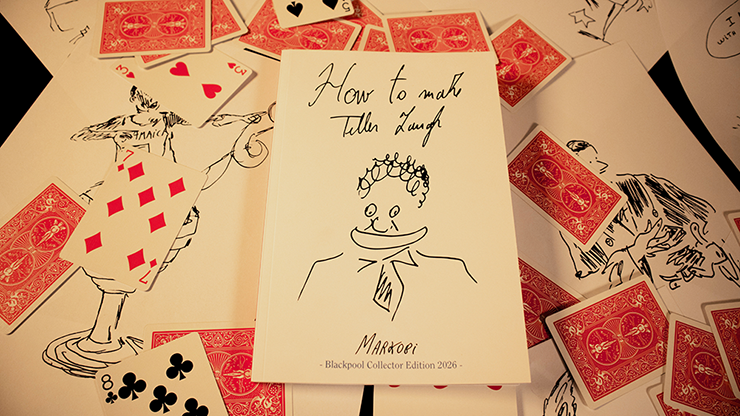 How to make
Teller Laugh
MARKOBI
- Blackpool Collector Edition 2026 -
5
3
3
7
7
8
MAGIC
I